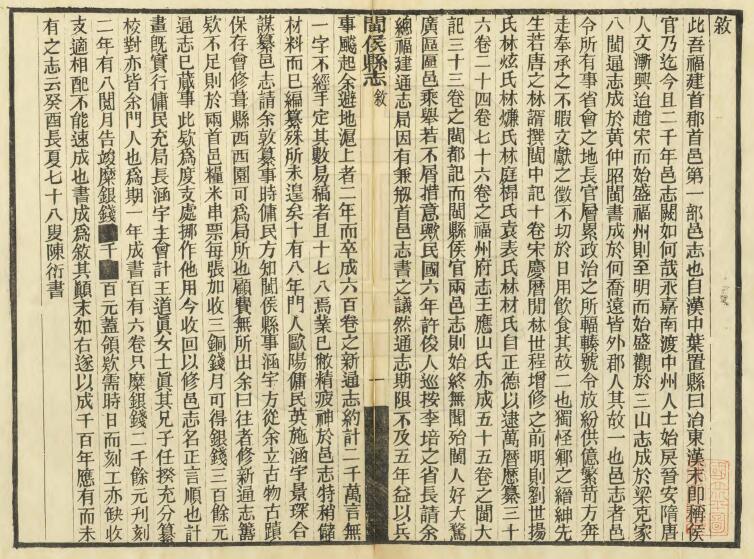 敘
此吾福建首郡首邑第一部邑志也自漢中葉置縣曰冶東漢末卽稱侯
官乃迄今且二千年邑志闕如何哉永嘉南渡中州人士始戾晉安隋唐
人文漸興迨趙宋而始盛福州則至明而始盛觀於三山志成於梁克家
八閩通志成於黃仲昭閩書成於何喬遠皆外郡人其故一也邑志者邑
令所有事省會之地長官層累政治之所輻輳號令放紛供億繁苛方奔
走奉承之不暇文獻之徵不切於日用飲食其故二也獨怪鄉之縉紳先
生若唐之林諝撰閩中記十卷宋慶曆閒林世程增修之前明則劉世揚
氏林炫氏林燫氏林庭㭿氏袁表氏林材氏自正德以逮萬曆歷纂三十
六卷二十四卷七十六卷之福州府志王應山氏亦成五十五卷之閩大
記三十三卷之閩都記而閩縣侯官兩邑志則始終無聞殆閩人好大騖
廣區區邑乘舉若不屑措意歟民國六年許俊人巡按李培之省長請余
總福建通志局因有兼剏首邑志書之議然通志期限不及五年益以兵
閩侯縣志
敘
一
事飈起余避地滬上者二年而卒成六百卷之新通志約計二千萬言無
一字不經手定其數易稿者且十七八焉業已敝精疲神於邑志特稍儲
材料而已編纂殊所未遑矣十有八年門人歐陽傭民英施涵宇景琛合
謀纂邑志請余敦纂事時傭民方知閩侯縣事涵宇方從余立古物古蹟
保存會修葺縣西西園可爲局所也顧費無所出余曰往者修新通志籌
欵不足則於兩首邑糧米串票每張加收三銅錢月可得銀錢三百餘元
通志已蕆事此欵爲度支處挪作他用今收回以修邑志名正言順也計
畫旣實行傭民充局長涵宇主會計王道眞女士眞其兄子任揆充分纂
校對亦皆余門人也爲期一年成書百有六卷只糜銀錢二千餘元刊刻
二年有八閱月告竣糜銀錢千百元蓋領欵需時日而刻工亦缺收
支適相配不能速成也書成爲敘其顚末如右遂以成千百年應有而未
有之志云癸酉長夏七十八叟陳衍書